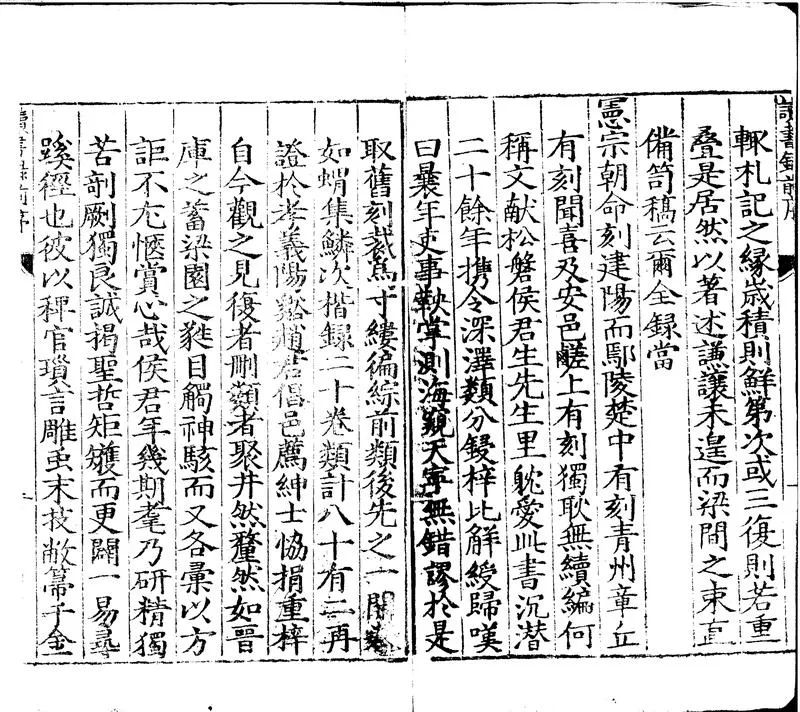 讀書錄前序
輒札記之緣歲積則鮮第次或三復則若重
疊是居然以著述謙讓未遑而梁間之束直
備笥稿云爾全録當
憲宗朝命刻建陽而鄢陵楚中有刻青州章丘
有刻聞喜及安邑𨢑上有刻獨耿無續編何
稱文献松磐侯君生先生里躭愛此書沉潜
二十餘年携令深澤類分鋟梓比觧綬歸嘆
曰曩年吏事鞅掌測海窺天寧無錯謬於是
取舊刻裁為寸縷徧綜前類後先之一閒
如蝟集鱗次楷録二十卷類計八十有二再
證於孝義陽谿趙君倡邑薦紳士恊捐重梓
自今觀之見復者刪類者聚井然釐然如晋
庫之蓄梁園之甡日觸神駭而又各彙以方
詎不尤愜賞心哉侯君年幾期耄乃研精獨
苦剞劂獨良誠揭聖哲矩矱而更闢一易尋
蹊徑也彼以稗官瑣言雕䖝末技敝箒千金
讀書録前序